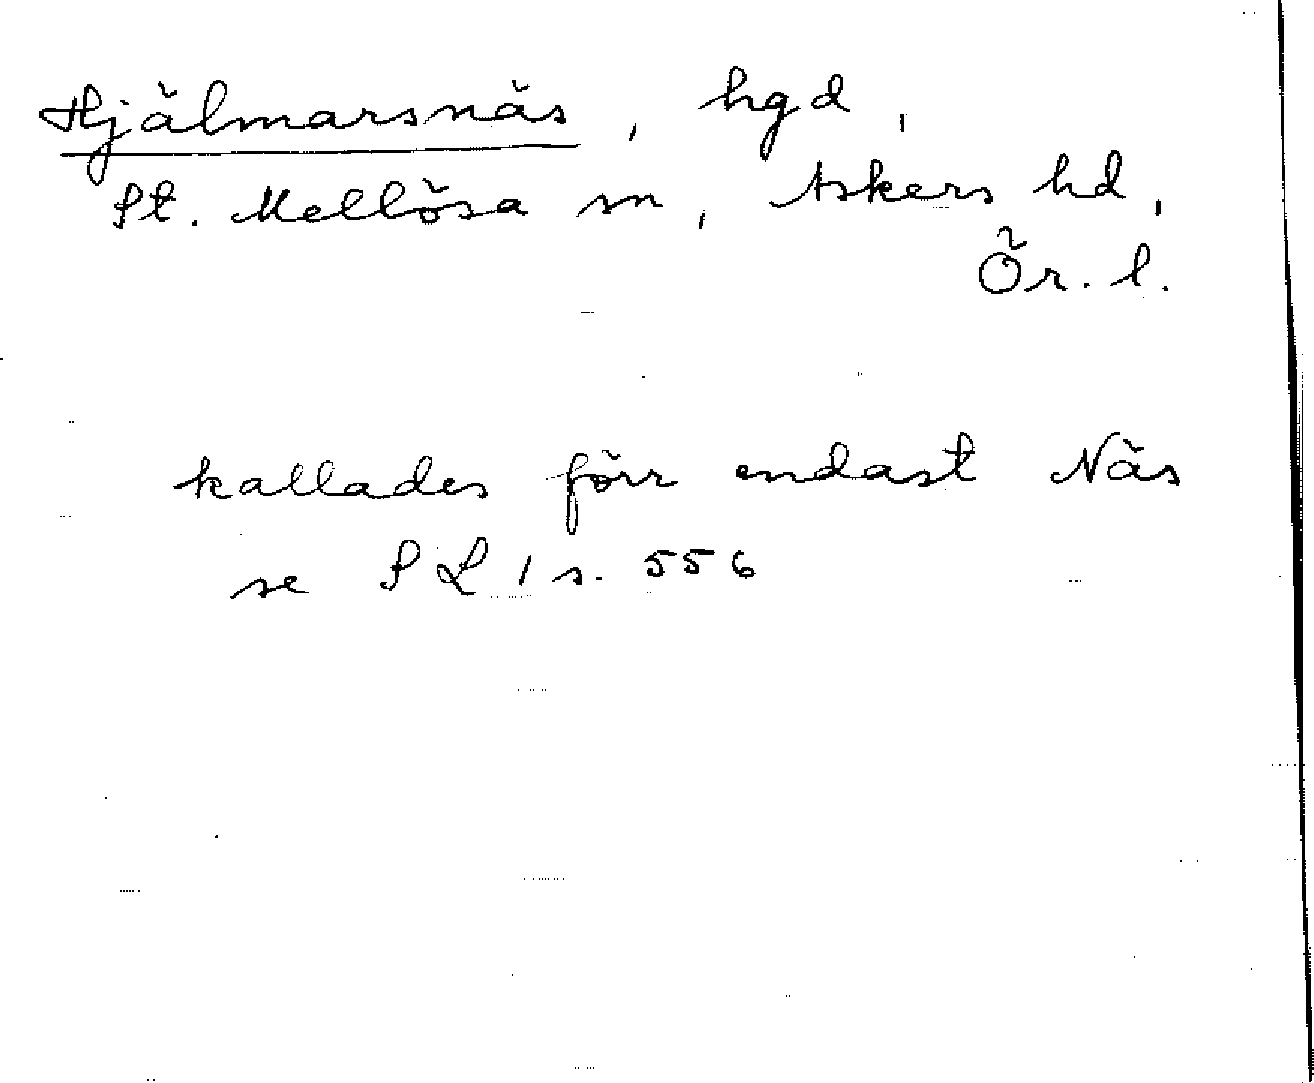 Hjälmarsnäs, hgd,
St. Mellösa sn, Askers hd,
Ör. l.
kallades förr endast Näs
se SL 1 s. 556